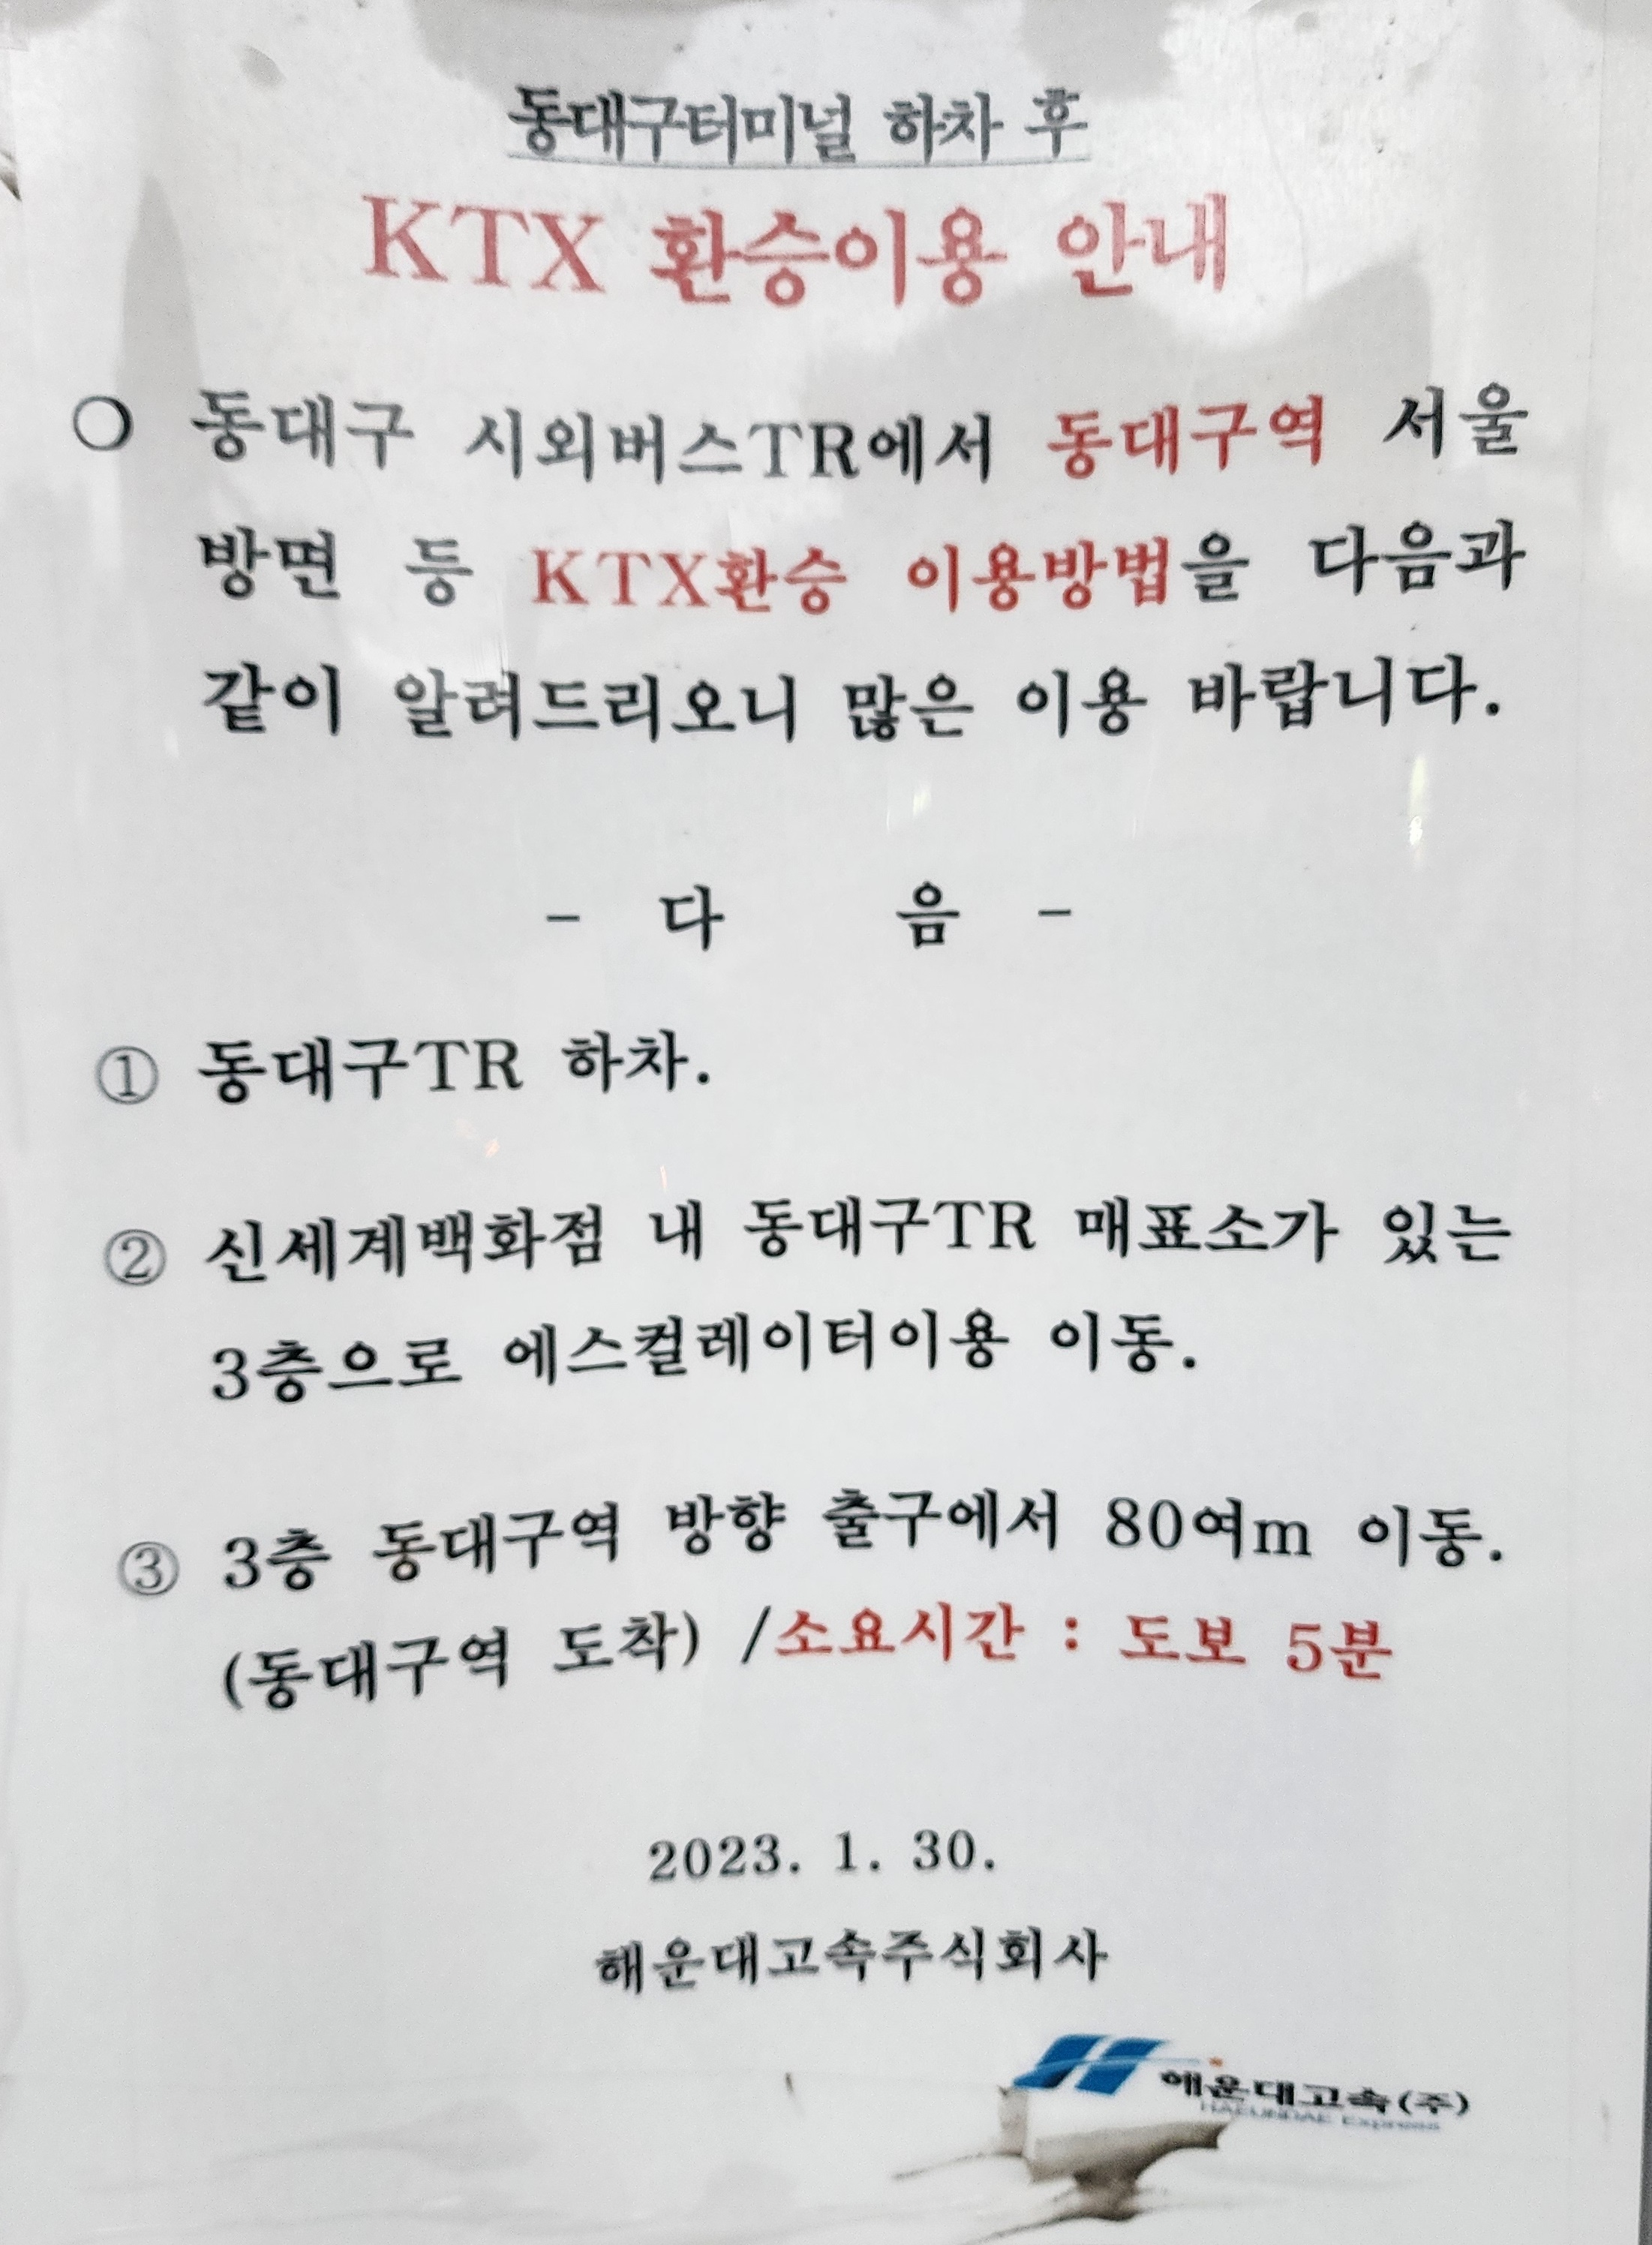 동대구터미널 하차 후
KTX 환승이용 안내
○ 동대구 시외버스TR에서 동대구역 서울
방면 등 KTX환승 이용방법을 다음과
같이 알려드리오니 많은 이용 바랍니다.
- 다 음 -
① 동대구TR 하차.
② 신세계백화점 내 동대구TR 매표소가 있는
3층으로 에스컬레이터이용 이동.
③ 3층 동대구역 방향 출구에서 80여m 이동.
(동대구역 도착) /소요시간 : 도보 5분
2023. 1. 30.
해운대고속주식회사
해운대고속(주)
HAEUNDAE Express